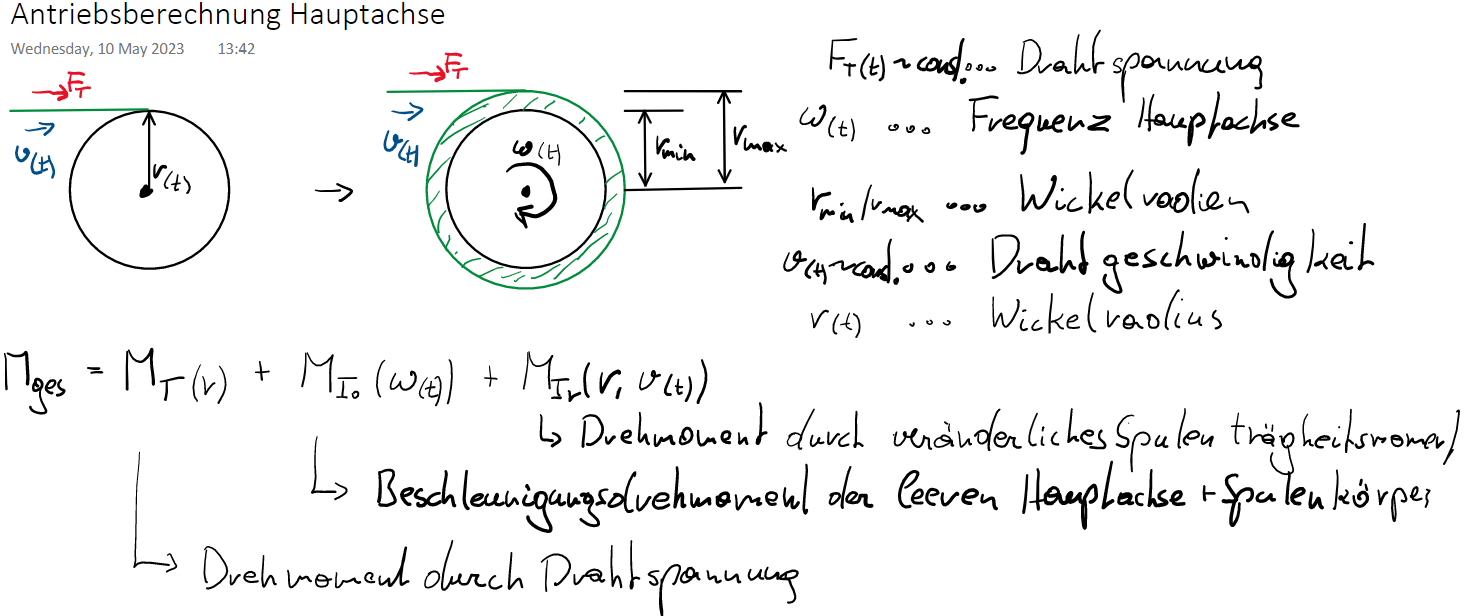 Antriebsberechnung Hauptachse
Wednesday, 10 May 2023 13:42
F_T
v(t)
r(t)
→
F_T
v(t)
ω(t)
r_min
r_max
F_T(t) ~ const.... Drahtspannung
ω(t) ... Frequenz Hauptachse
r_min/r_max ... Wickelradien
v(t) ~ const.... Drahtgeschwindigkeit
r(t) ... Wickelradius
M_ges = M_T(r) + M_I₀(ω(t)) + M_Ir(r, v(t))
↳ Drehmoment durch veränderliches Spulenträgheitsmoment
↳ Beschleunigungsdrehmoment der leeren Hauptachse + Spulenkörper
↳ Drehmoment durch Drahtspannung